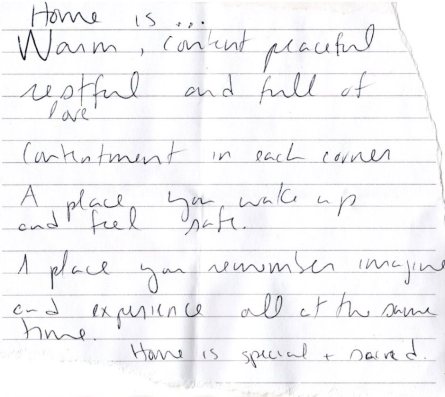 Home is ...
Warm, content peaceful
restful and full of
love
Contentment in each corner
A place you wake up
and feel safe.
A place you remember imagine
and experience all at the same
time.
Home is special + sacred.